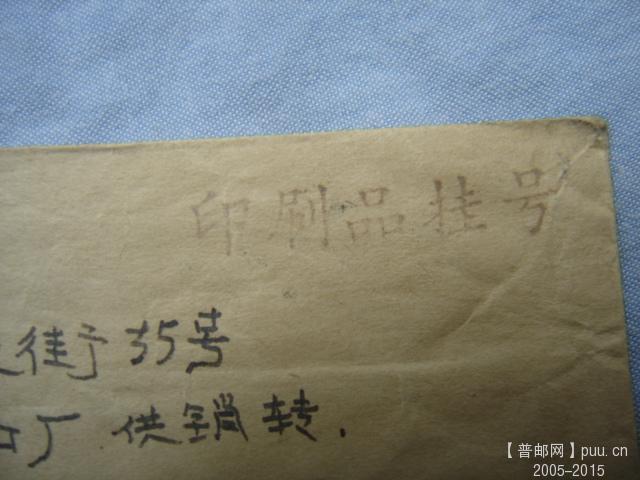 印刷品挂号
街于35号
厂供销转.
【普邮网】puu.cn
2005-2015